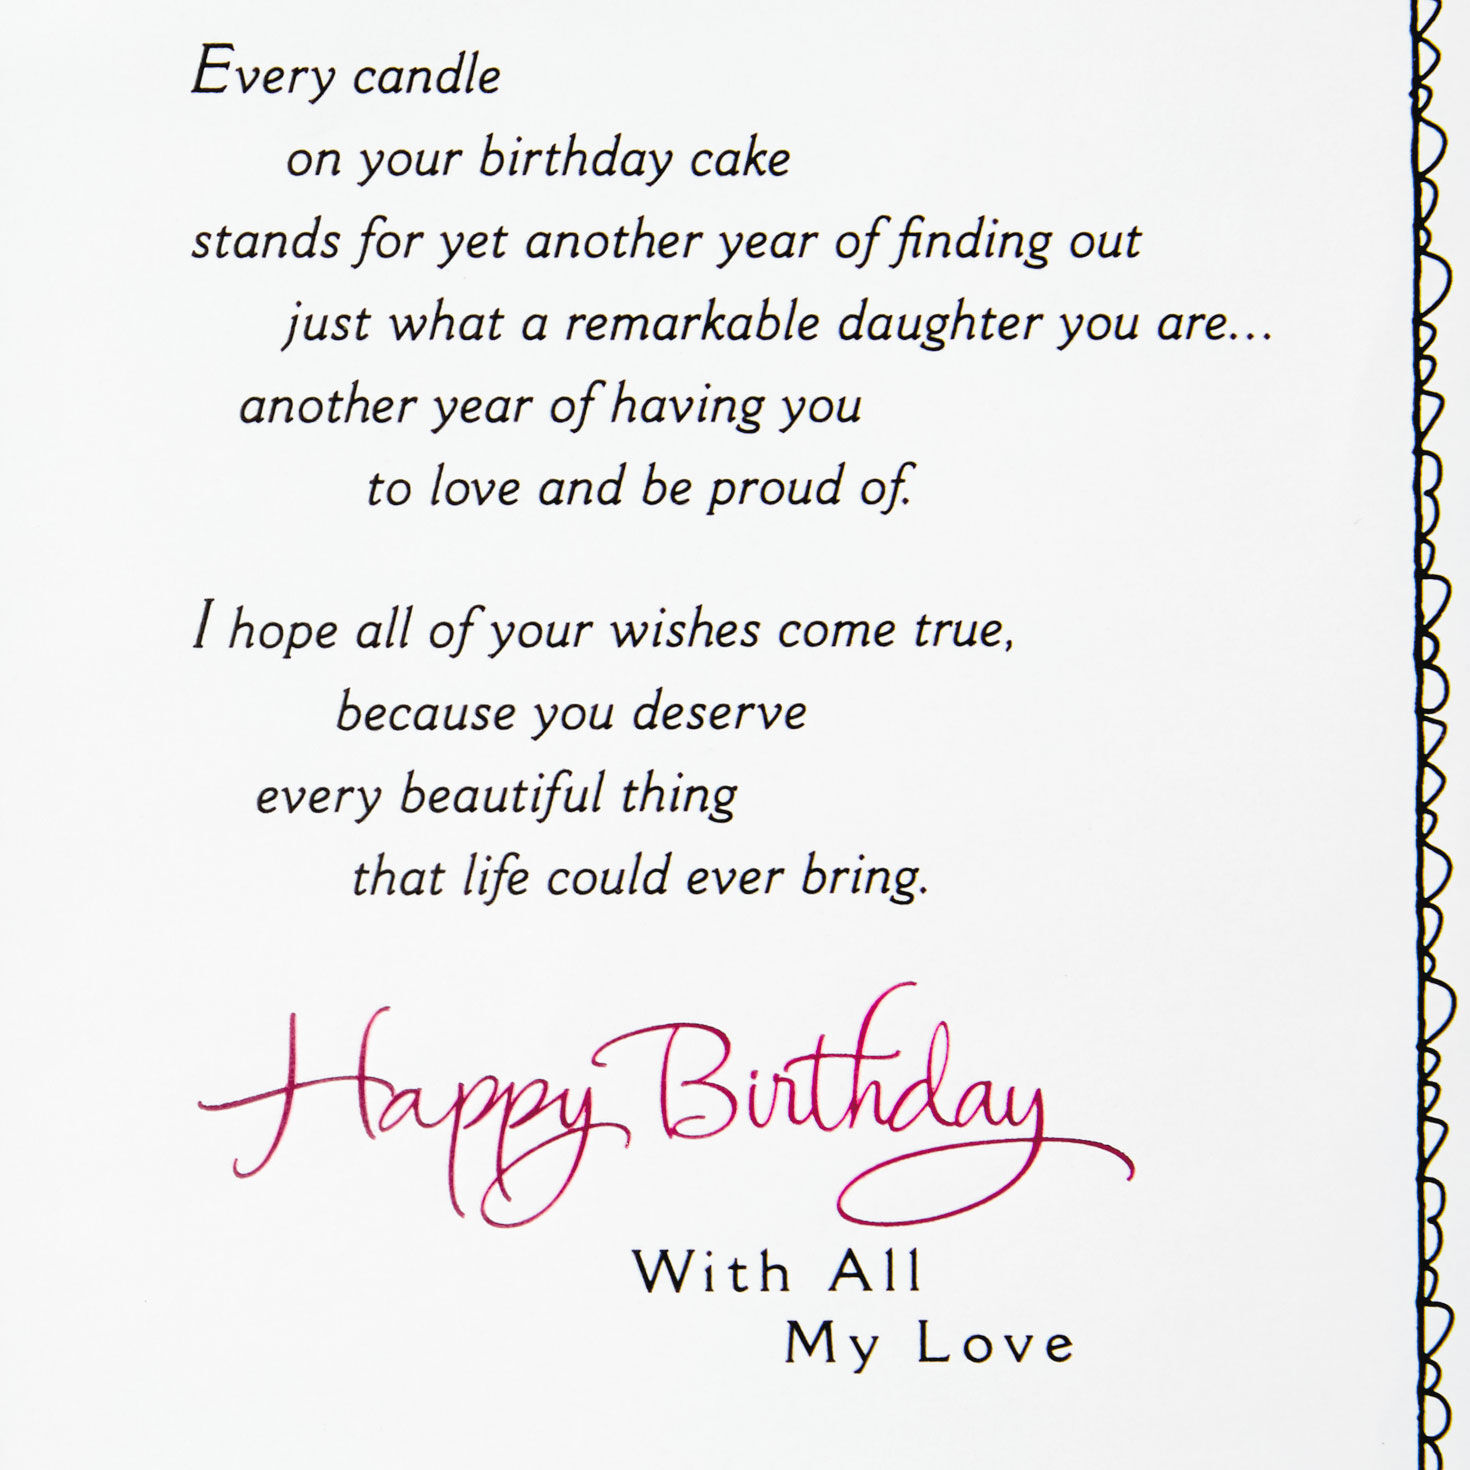 Every candle
on your birthday cake
stands for yet another year of finding out
just what a remarkable daughter you are...
another year of having you
to love and be proud of.
I hope all of your wishes come true,
because you deserve
every beautiful thing
that life could ever bring.
Happy Birthday
With All
My Love